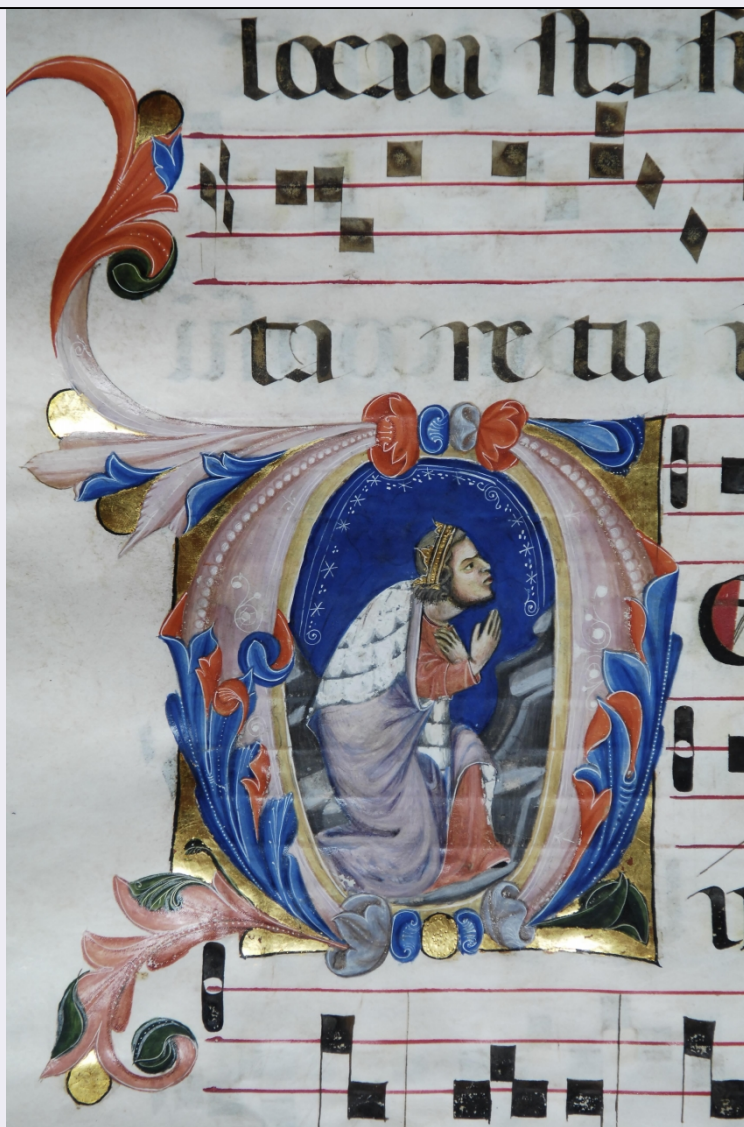 locau sta
ta re tu
O